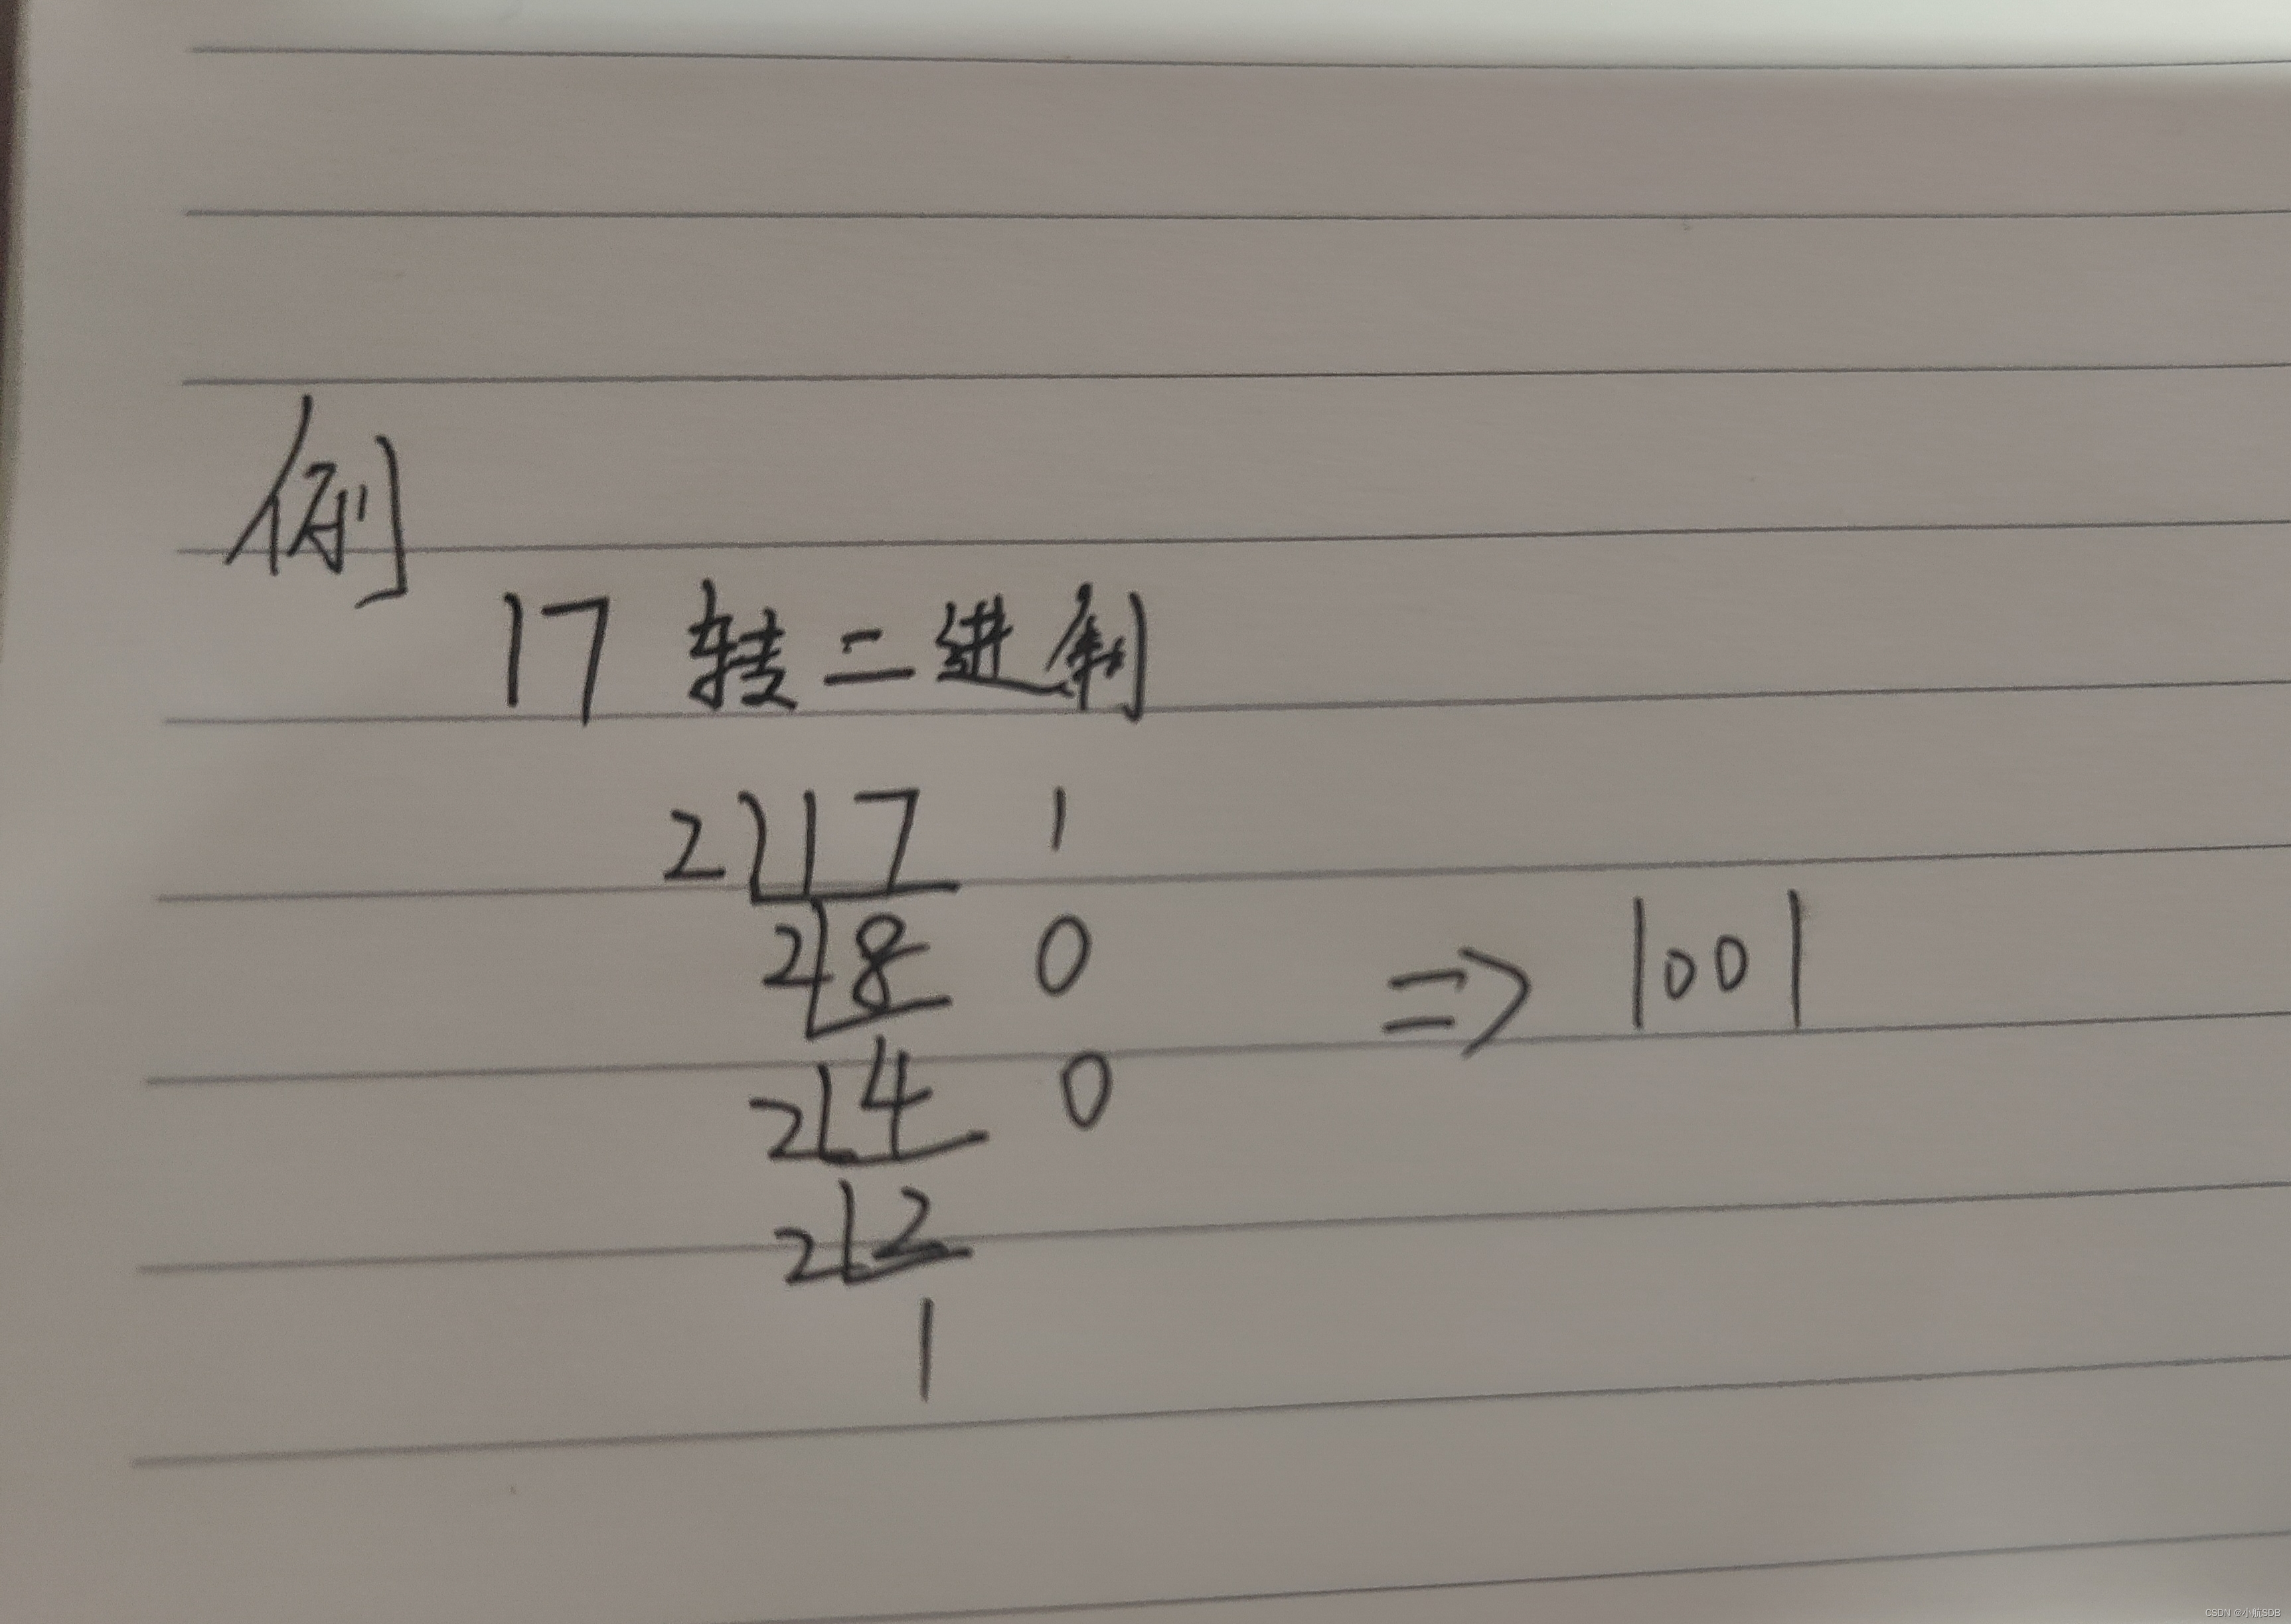 例
17 转二进制
2 17 1
2 8 0
=> 1001
2 4 0
2 2
1
CSDN @小航SDB